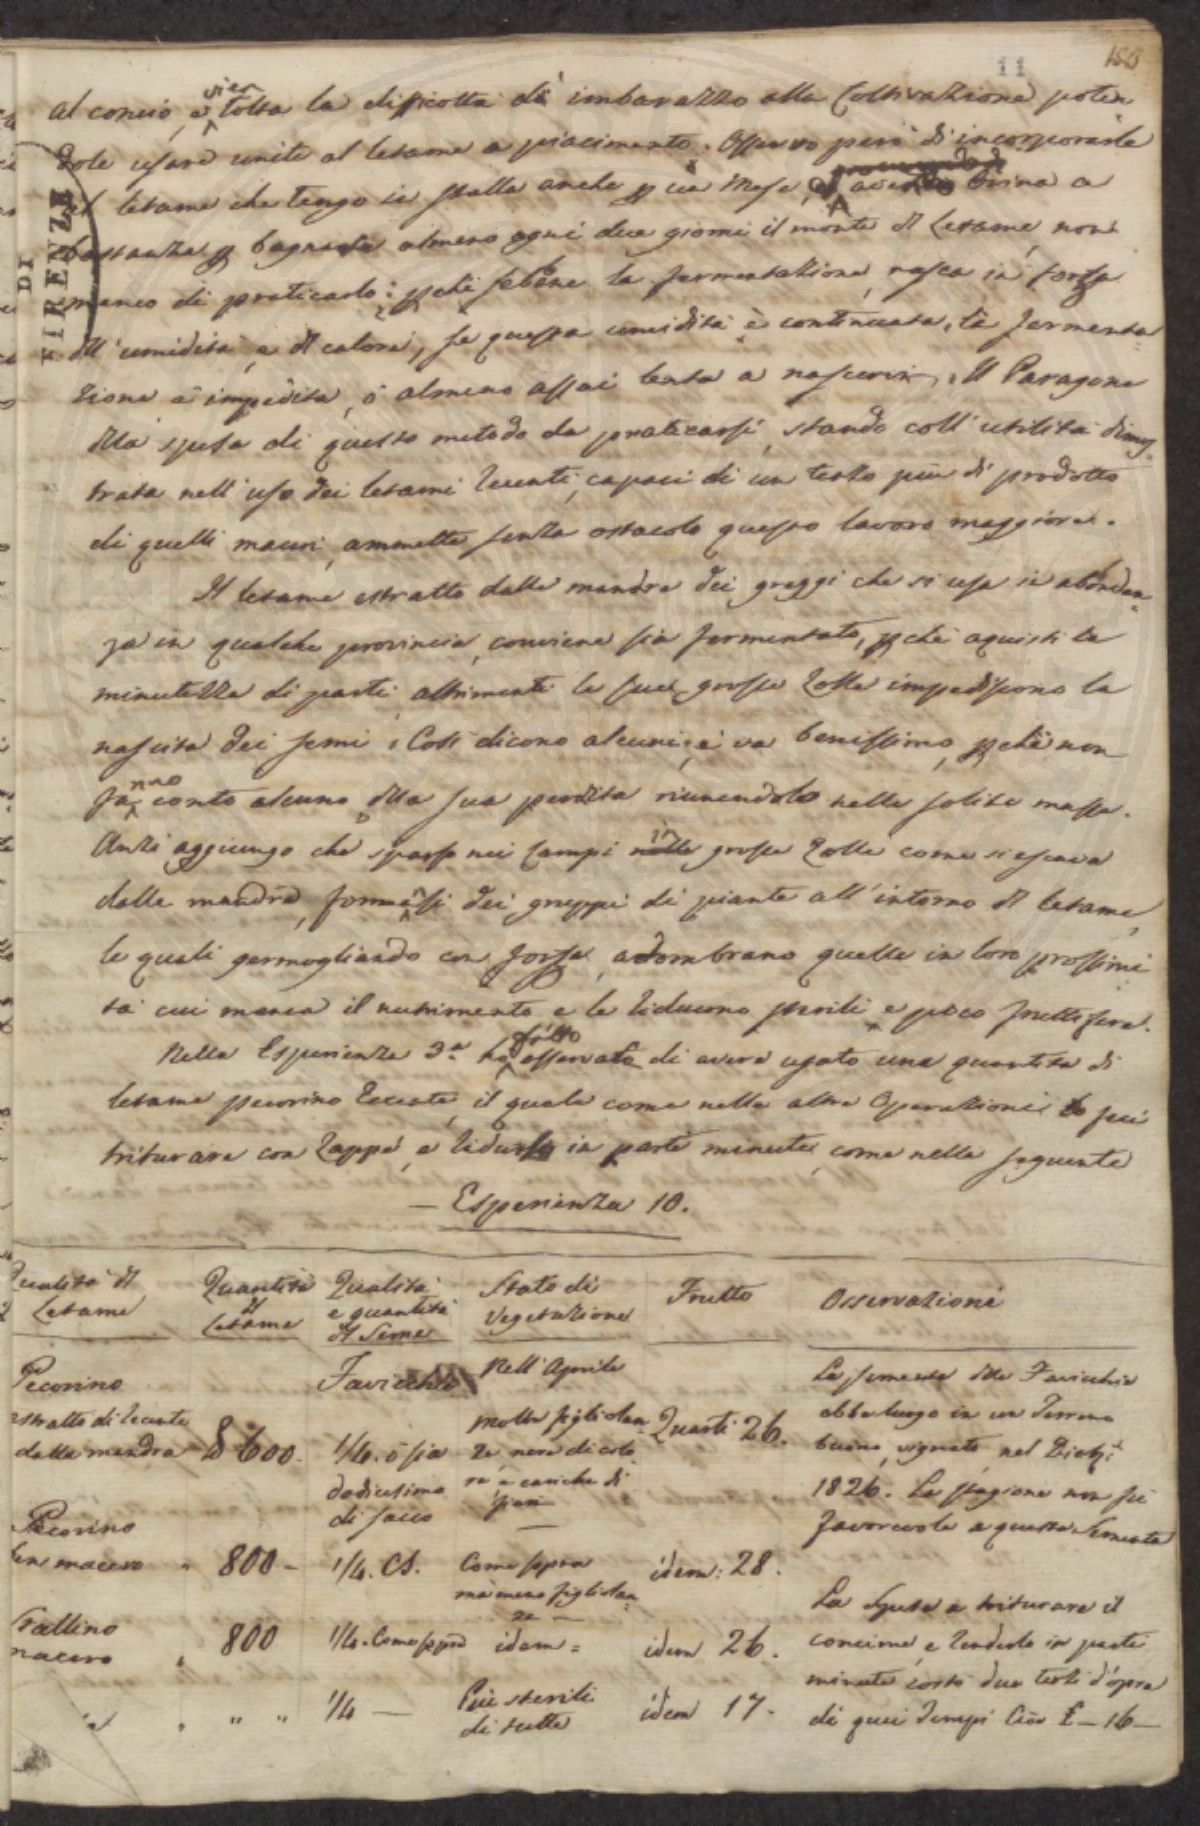 11 150
al concio, e vien tolta la difficoltà di imbarazzo alla Coltivazione poten
dole usare unite al letame a piacimento. Osservo però di incorporarle
al letame che tengo in stalla anche per un Mese, procurando di avere Orina a
bastanza per bagnarla almeno ogni due giorni il monte del letame, non
manco di praticarlo: perchè sebene la fermentazione, nasca in forza
dell'umidità, e del calore, se questa umidità è continuata, la fermenta
zione è impedita, o almeno assai lenta a nascervi. Il Paragone
della spesa di questo metodo da praticarsi, stando coll'utilità dimos
trata nell'uso dei letami recenti, capaci di un terzo più di prodotto
di quelli maceri, ammette senza ostacolo questo lavoro maggiore.
Il letame estratto dalle mandre dei greggi che si usa in abondan
za in qualche provincia, conviene sia fermentato, perchè aquisti la
minutezza di parti, altrimenti le sue grosse Zolle impediscono la
nascita dei semi. Così dicono alcuni, e va benissimo, perchè non
fanno conto alcuno della sua perdita riunendolo nelle solite masse.
Anzi aggiungo che sparso nei Campi in grosse Zolle come si escava
dalle mandre, formansi dei gruppi di piante all'intorno del letame,
le quali germogliando con forza, adombrano quelle in loro prossimi
tà cui manca il nutrimento e le riducono sterili e poco fruttifere.
Nella Esperienza 3.a ho fatto osservare di avere usato una quantità di
letame pecorino recente, il quale come nelle altre Operazioni lo feci
triturare con Zappe, e ridurlo in parti minute, come nella seguente
— Esperienza 10.
Qualità del Letame
Quantità del Letame
Qualità e quantità del Seme
Stato di Vegetazione
Frutto
Osservazioni
Pecorino
estratto di recente
dalla mandra ℔ 600.
1/4. o sia
dodicesimo
di sacco
Nell'Aprile
molta figliolan
za nere di colo
re e cariche di
fiori
Quarti 26.
Favicchie
La sementa delle Favicchie
ebbe luogo in un Terreno
buono, vignato, nel Dicbre
1826. La stagione non fu
favorevole a questa Sementa
Pecorino
ben macero " 800 –
1/4. CS.
Come sopra
mà meno figliolan
za —
idem: 28.
Stallino
macero " 800
1/4. Come sopra
idem =
idem 26.
La Spesa a triturare il
concime, e renderlo in parti
minute costò due terzi d'opra
di quei tempi Cioè £ – 16 —
" " "
1/4 —
Più sterili
di tutte
idem 17.
DI
FIRENZE